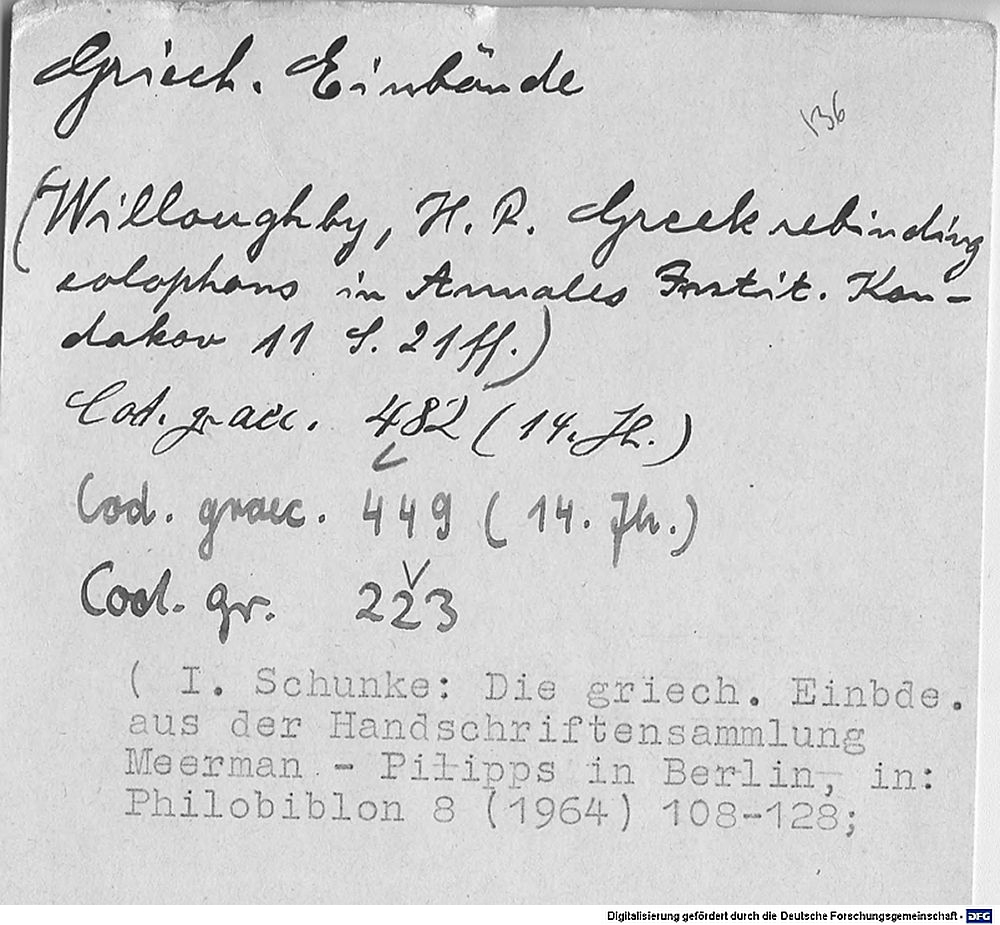 Griech. Einbände
136
(Willoughby, H. R. Greek rebinding
colophons in Annales Instit. Kon-
dakov 11 S. 21ff.)
Cod. graec. 482 (14. Jh.)
Cod. graec. 449 (14. Jh.)
Cod. gr. 223
( I. Schunke: Die griech. Einbde.
aus der Handschriftensammlung
Meerman - Pilipps in Berlin, in:
Philobiblon 8 (1964) 108-128;
Digitalisierung gefördert durch die Deutsche Forschungsgemeinschaft - DFG